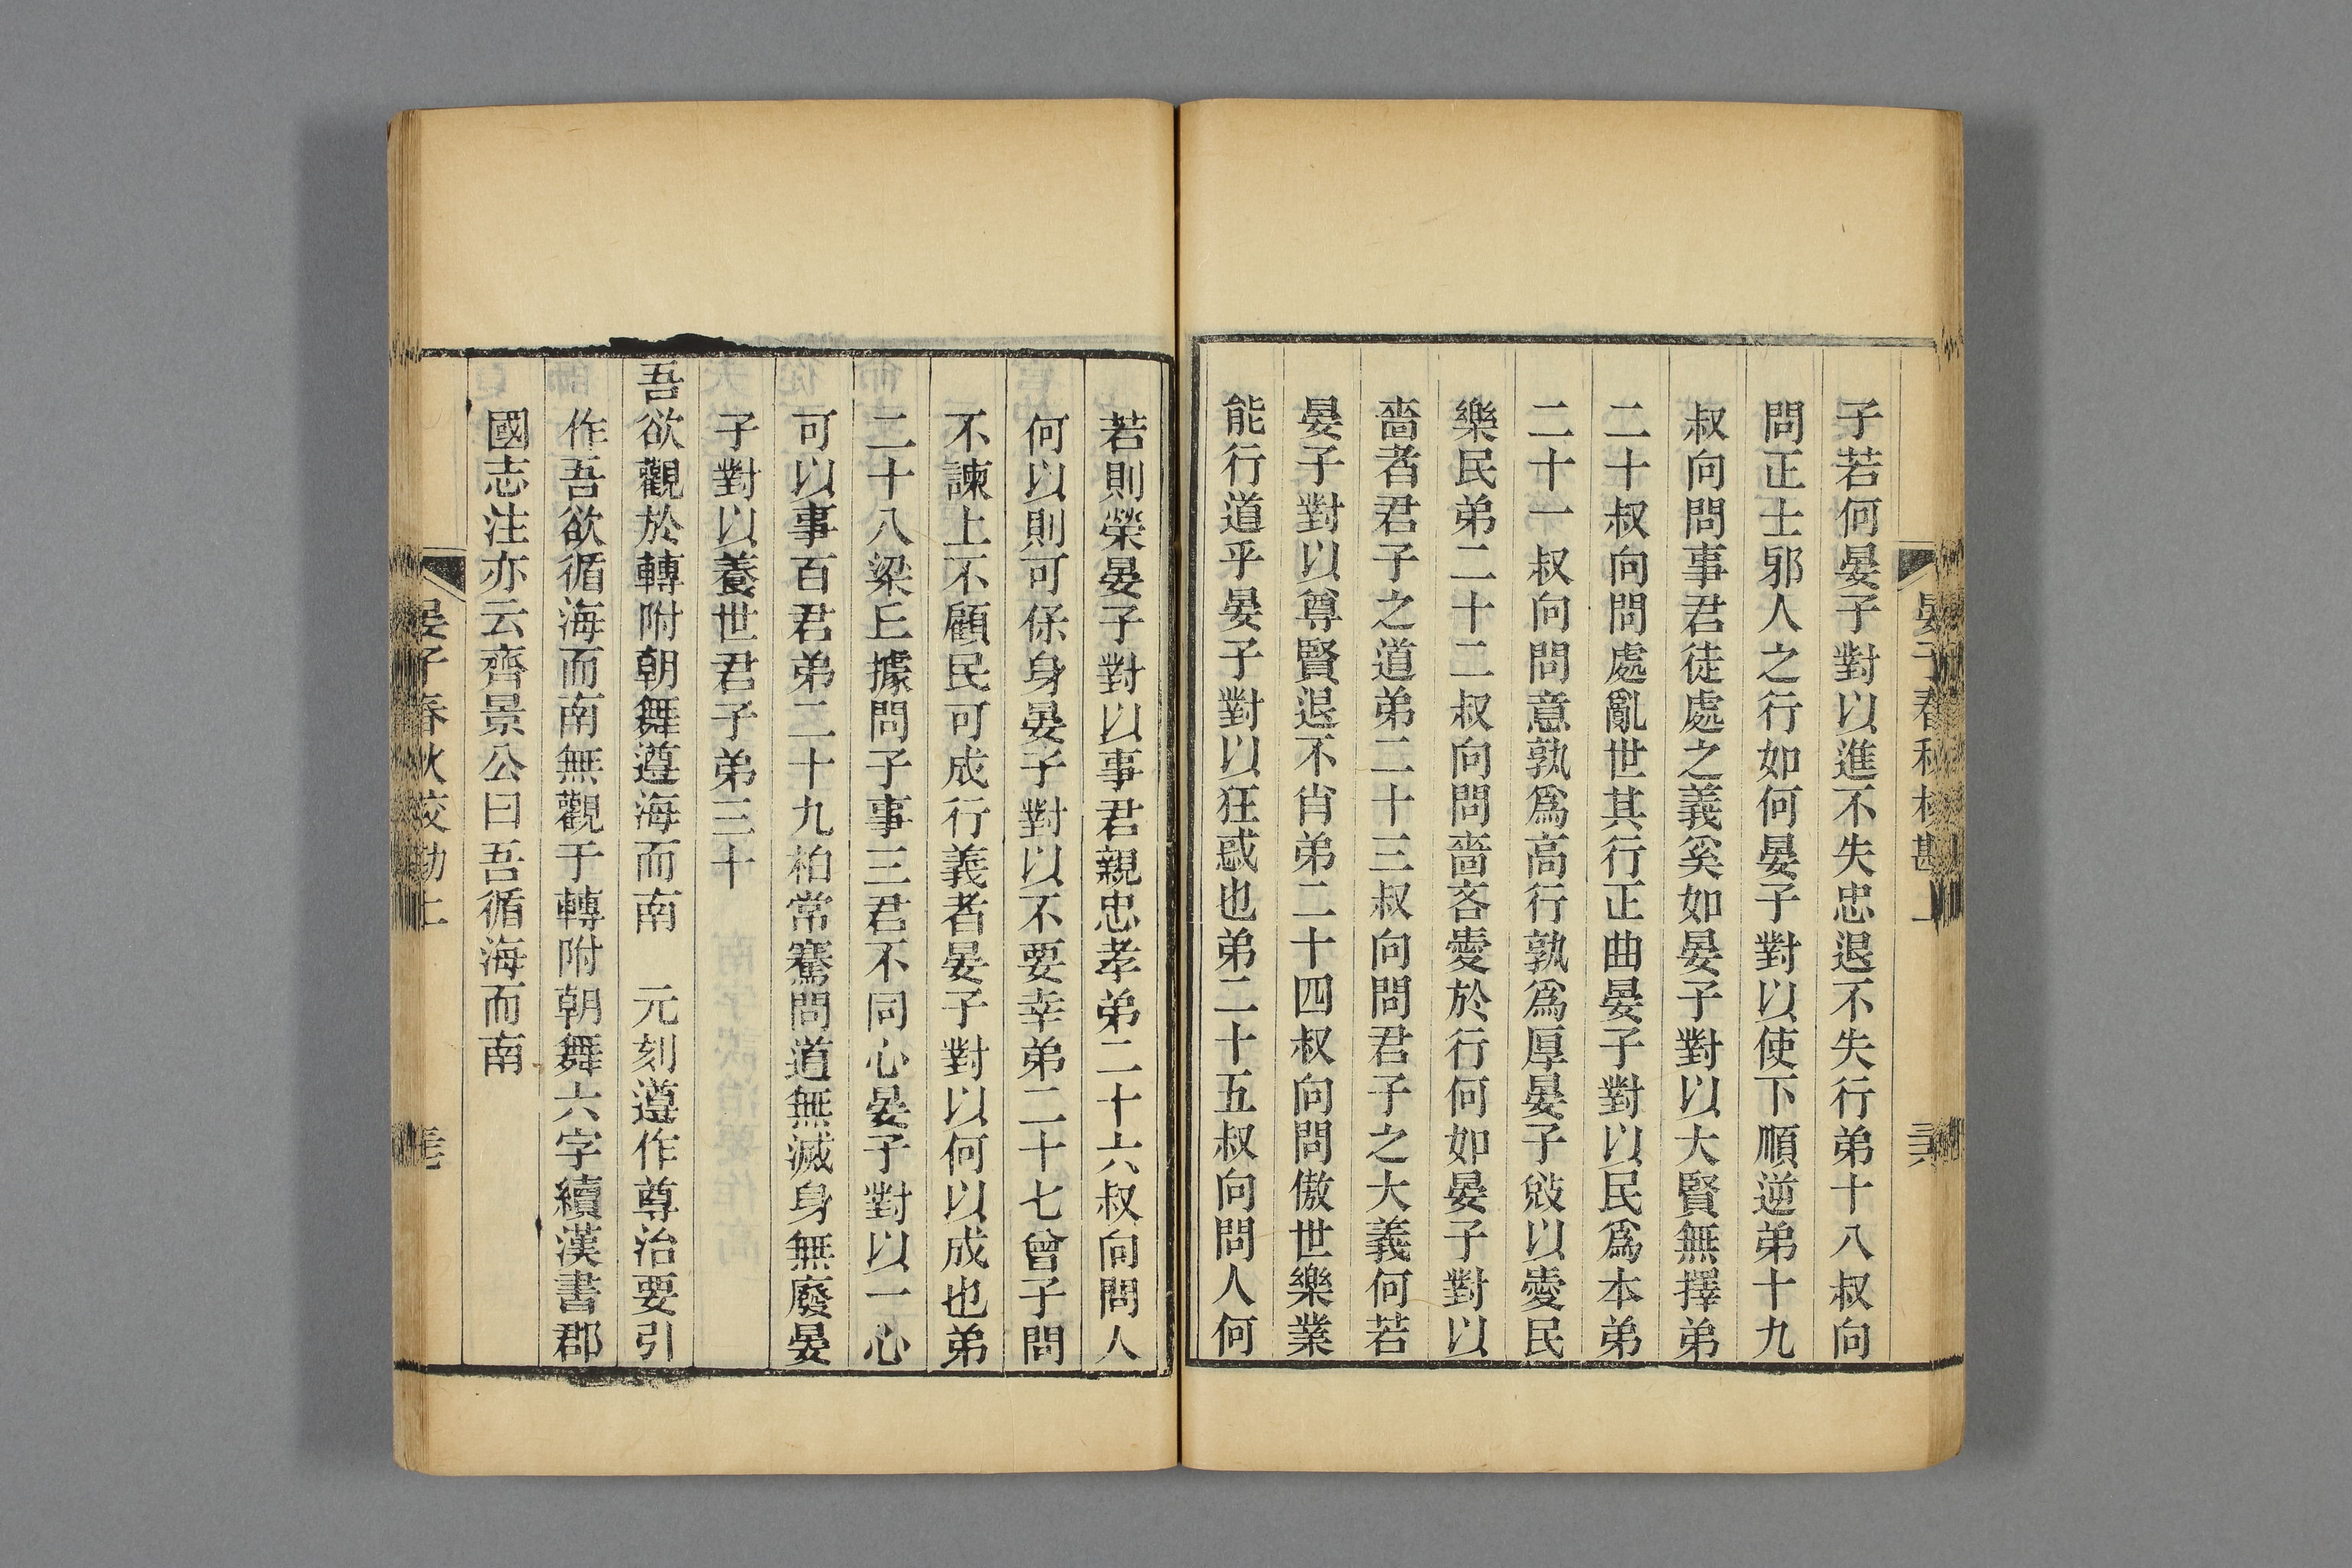 晏子春秋校勘上
子若何晏子對以進不失忠退不失行弟十八叔向
問正士邪人之行如何晏子對以使下順逆弟十九
叔向問事君徒處之義奚如晏子對以大賢無擇弟
二十叔向問處亂世其行正曲晏子對以民爲本弟
二十一叔向問意孰爲高行孰爲厚晏子對以愛民
樂民弟二十二叔向問嗇吝愛於行何如晏子對以
嗇者君子之道弟二十三叔向問君子之大義何若
晏子對以尊賢退不肖弟二十四叔向問傲世樂業
能行道乎晏子對以狂惑也弟二十五叔向問人何
若則榮晏子對以事君親忠孝弟二十六叔向問人
何以則可保身晏子對以不要幸弟二十七曾子問
不諫上不顧民可成行義者晏子對以何以成也弟
二十八梁丘據問子事三君不同心晏子對以一心
可以事百君弟二十九柏常騫問道無滅身無廢晏
子對以養世君子弟三十
吾欲觀於轉附朝舞遵海而南　元刻遵作尊治要引
作吾欲循海而南無觀于轉附朝舞六字續漢書郡
國志注亦云齊景公曰吾循海而南
晏子春秋校勘上